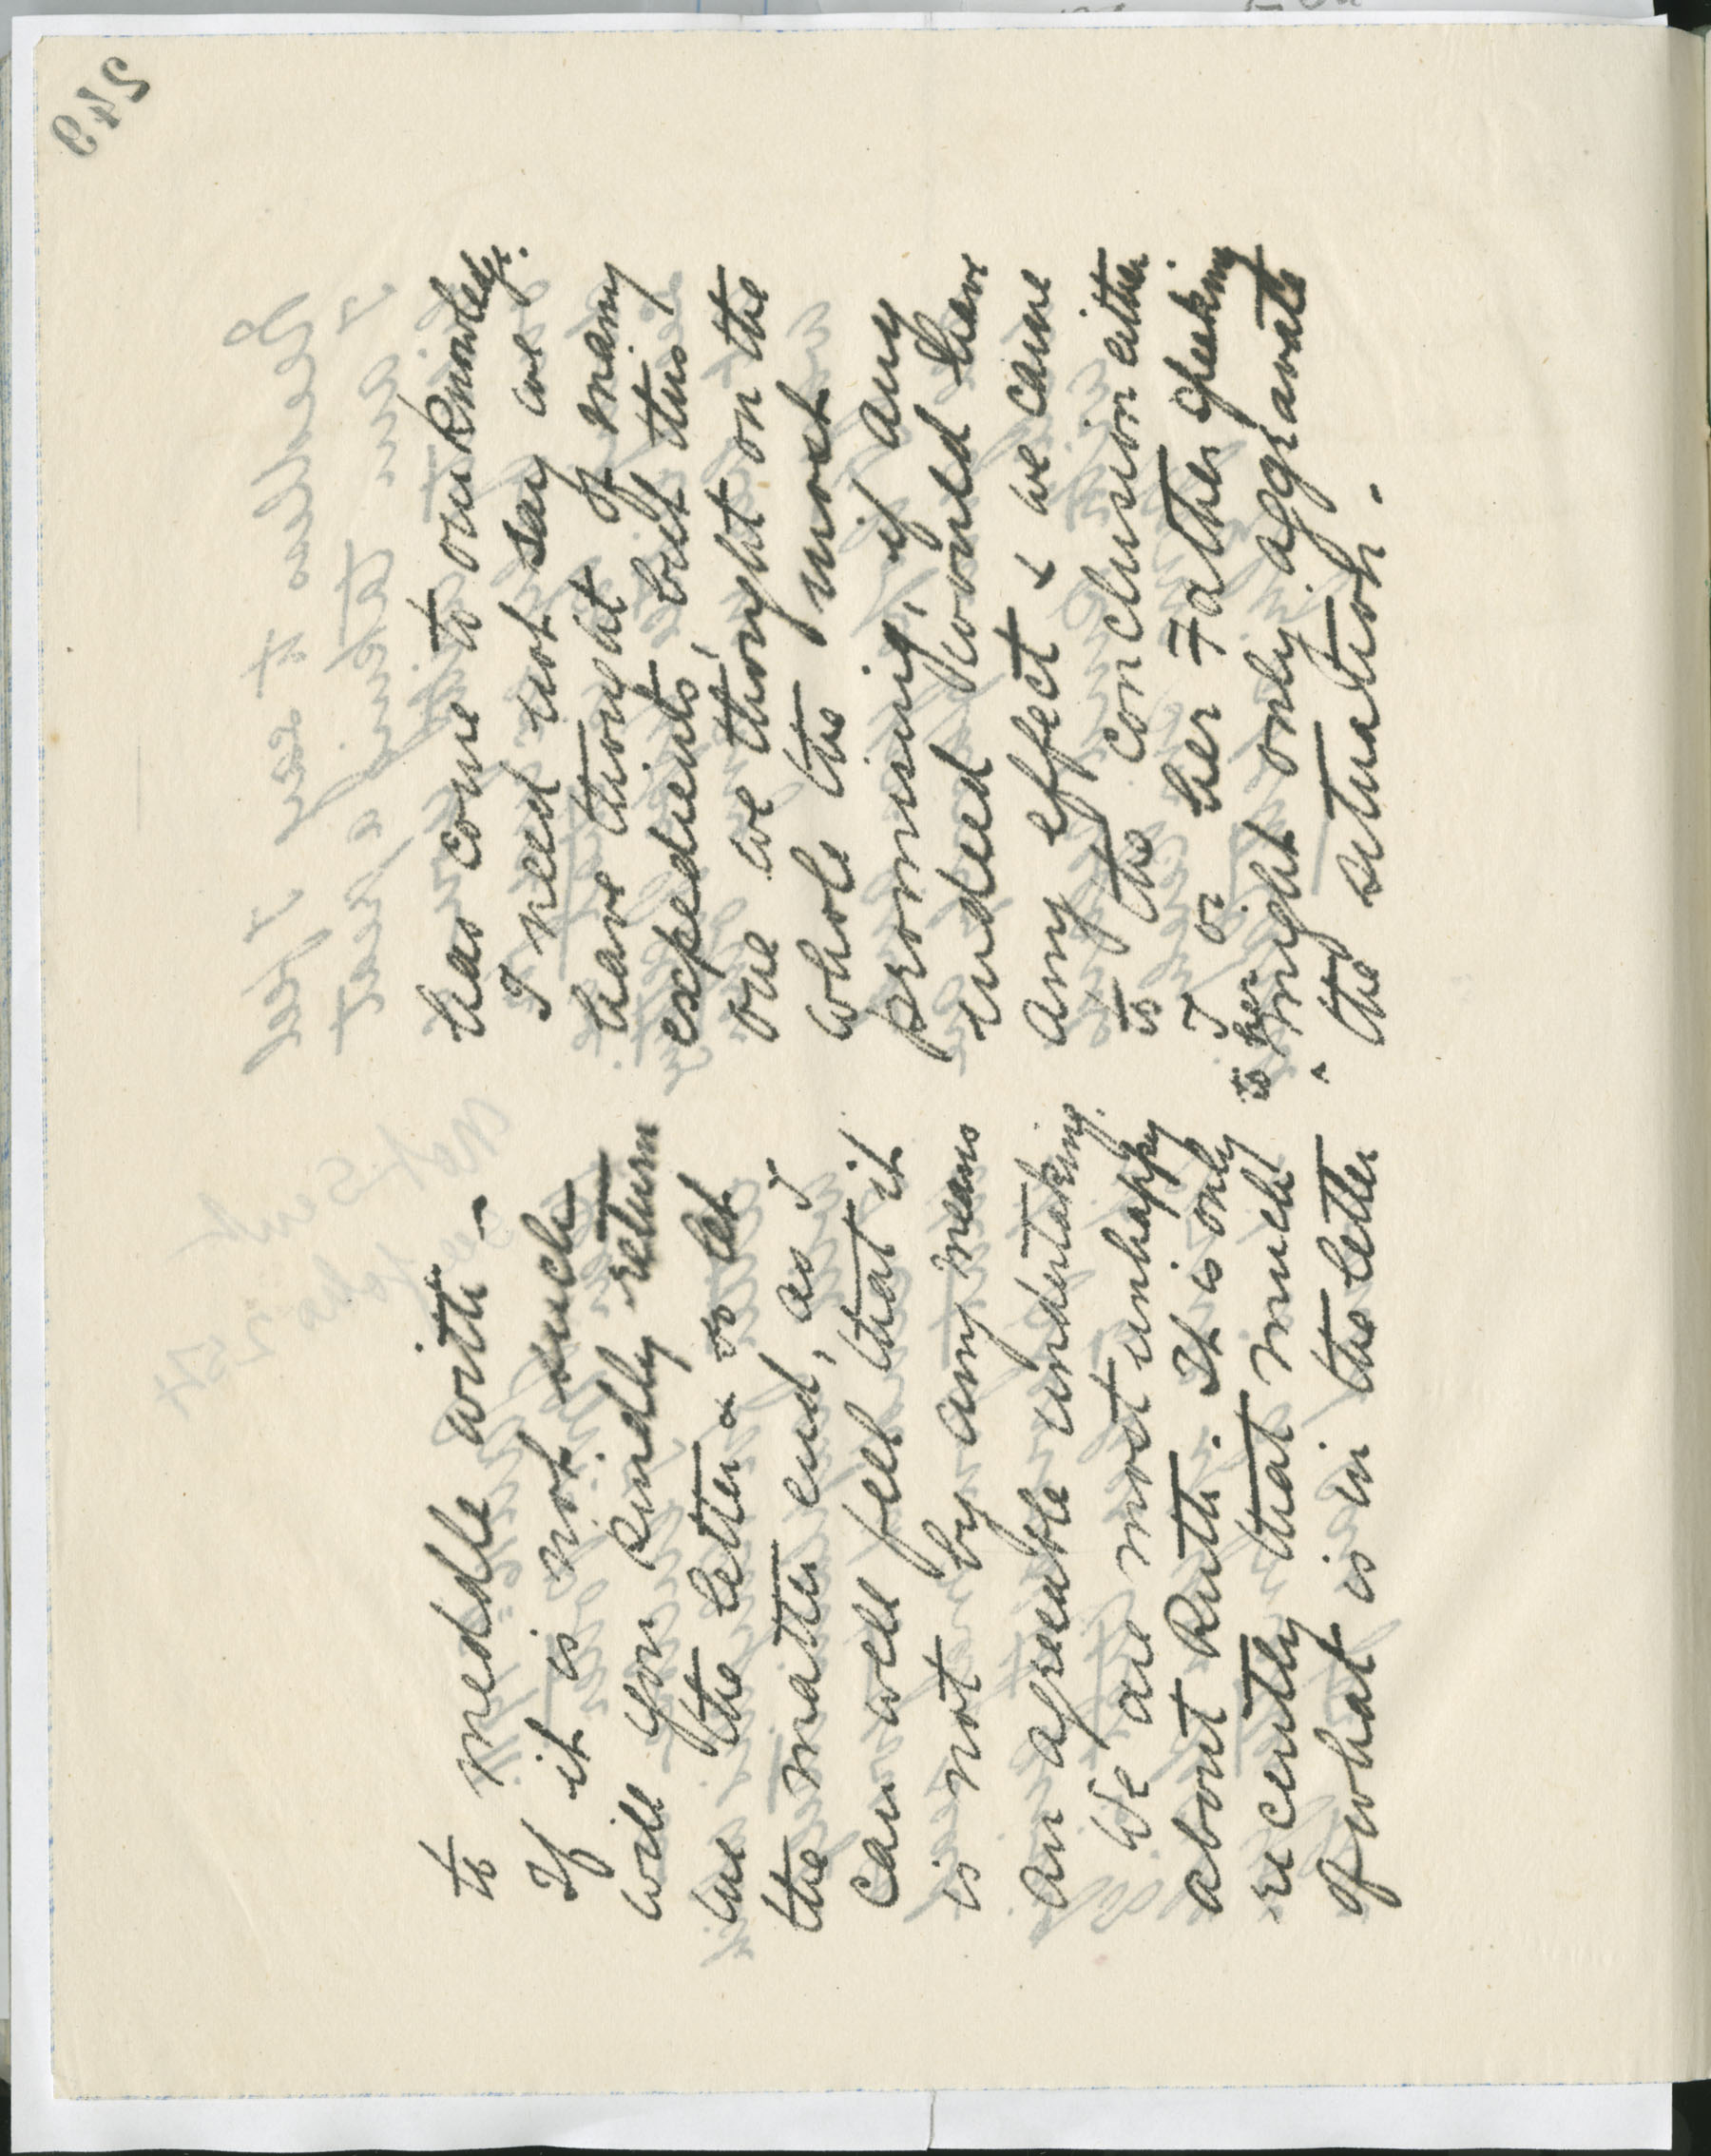 to meddle with -
If it is not such
will you kindly return
me the letter & so let
the matter end, as I
can well feel that it
is not by any means
an agreeable undertaking.
We are most unhappy
about Ruth. It is only
recently that much
of what is in the letter
has come to our knowledge.
I need not say we
have thought of many
expedients, but this
one we thought on the
whole the most
promising, if any
indeed would have
any effect & we came
to the conclusion either
I or her Father speaking
to her ^ might only aggravate
the situation.
249
Not Sent
see folio 254